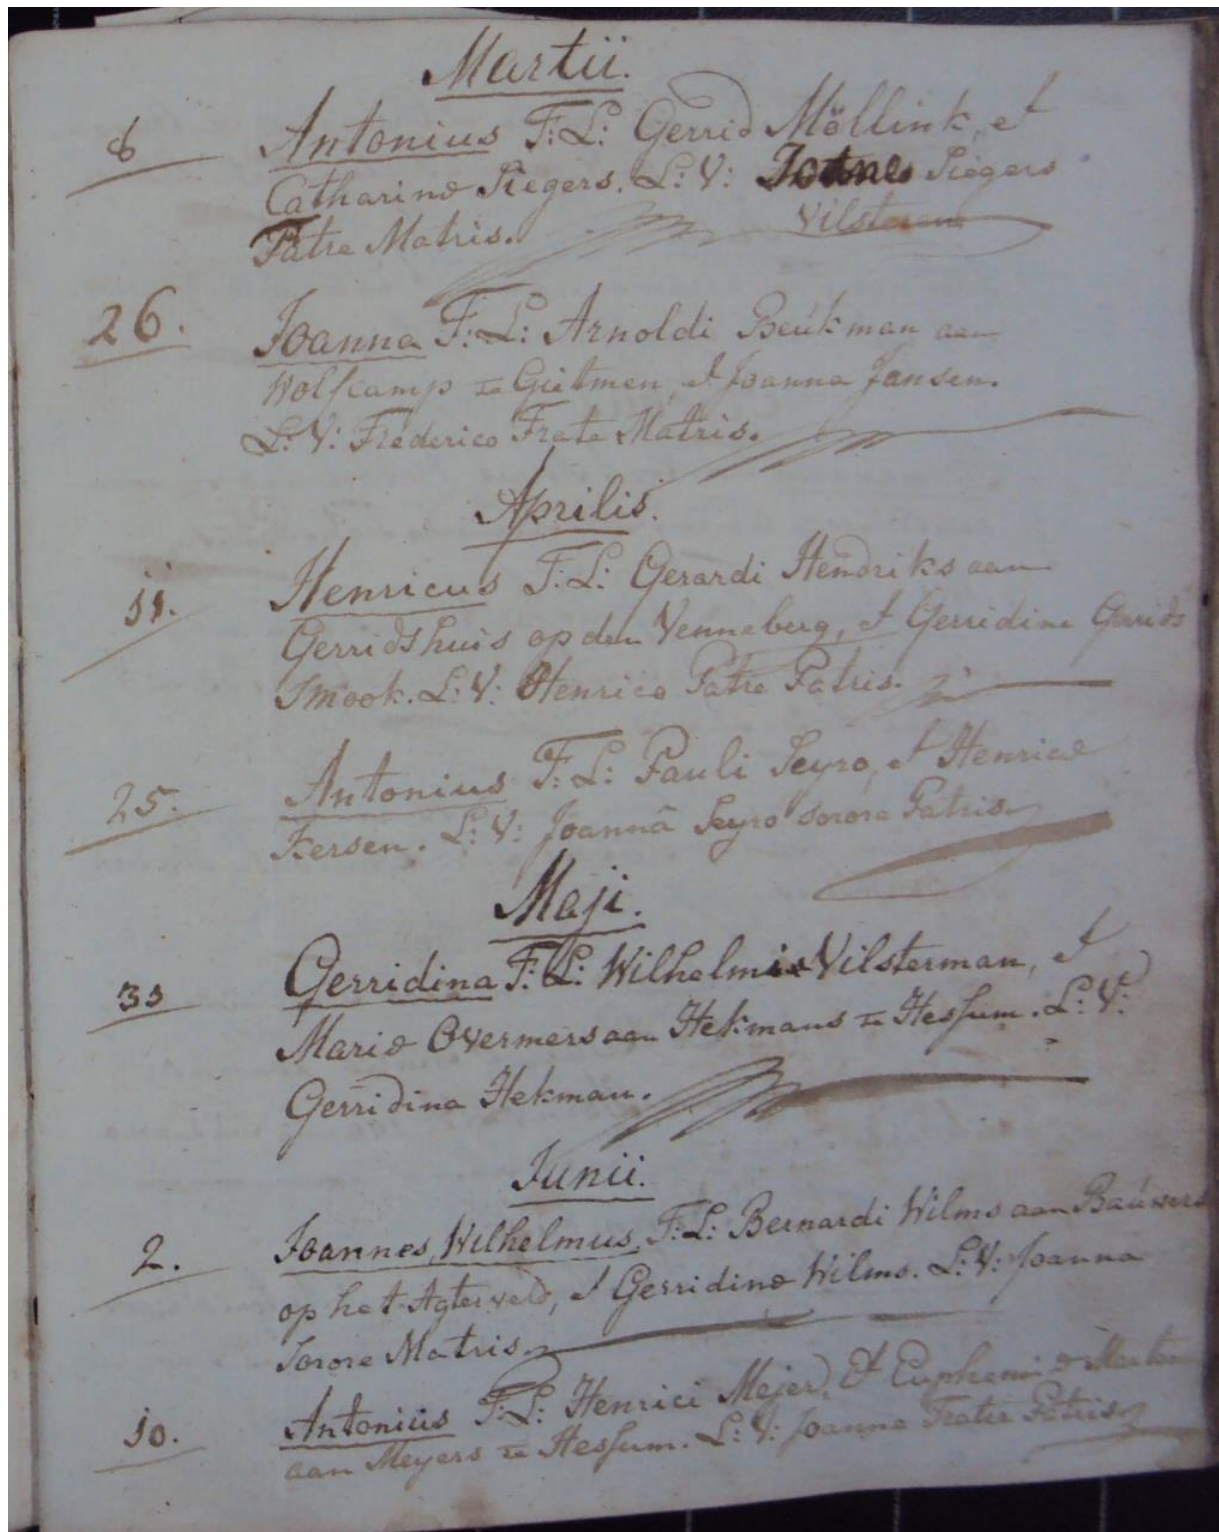 Martii.
6 Antonius F: L: Gerrid Möllink, et
Catharinæ Siegers. L: V: Siegers
Patre Matris. Vilsteren
26. Joanna F: L: Arnoldi Beukman aan
Wolfcamp te Gietmen, et Joanna Jansen.
L: V: Frederico Frate Matris.
Aprilis.
11. Henricus F: L: Gerardi Hendriks aan
Gerridshuis op den Venneberg, et Gerridina Gerrids
Smook. L: V: Henrico Patre Patris.
25. Antonius F: L: Pauli Seyro, et Henricæ
Kersen. L: V: Joannâ Seyro sorore Patris
Maji.
Gerridina F: L: Wilhelmi Vilsterman, et
Mariæ Overmers aan Hekmans te Hessum. L: V:
Gerridina Hekman.
Junii.
2. Joannes, Wilhelmus, F: L: Bernardi Wilms aan Bauwers
op het Agterveld, et Gerridinæ Wilms. L: V: Joanna
Sorore Matris.
10. Antonius F: L: Henrici Mejer, et Euphemiæ
aan Meyers te Hessum. L: V: Joanne Fratre Patris